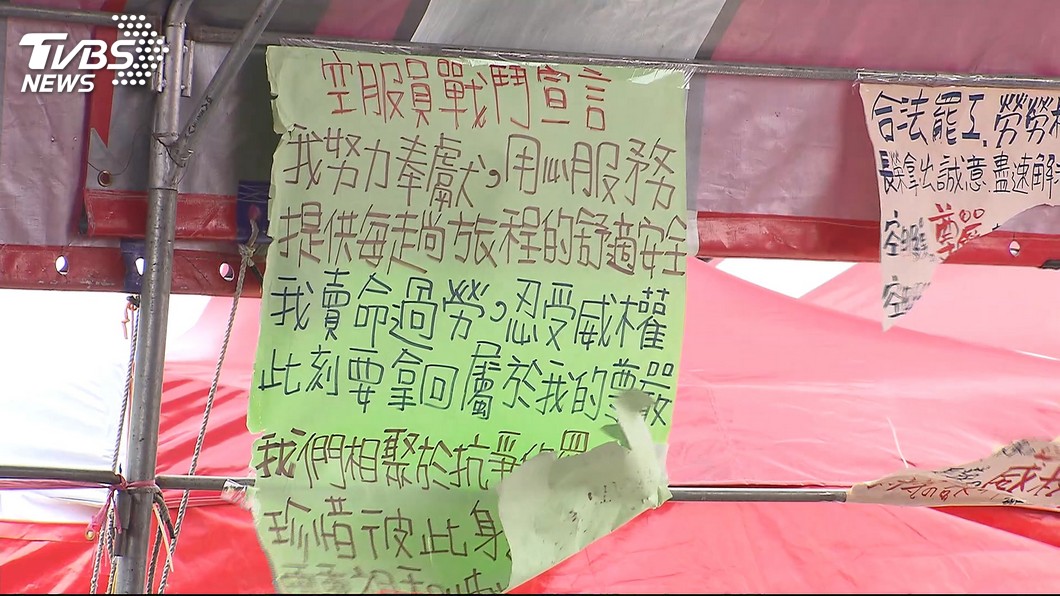 TVBS
NEWS
空服員戰鬥宣言
我努力奉獻,用心服務
提供每趟旅程的舒適安全
我賣命過勞,忍受威權
此刻要拿回屬於我的尊嚴
我們相聚於抗爭
珍惜彼此身
合法罷工,勞勞
長榮拿出誠意,盡速解
空
空
威